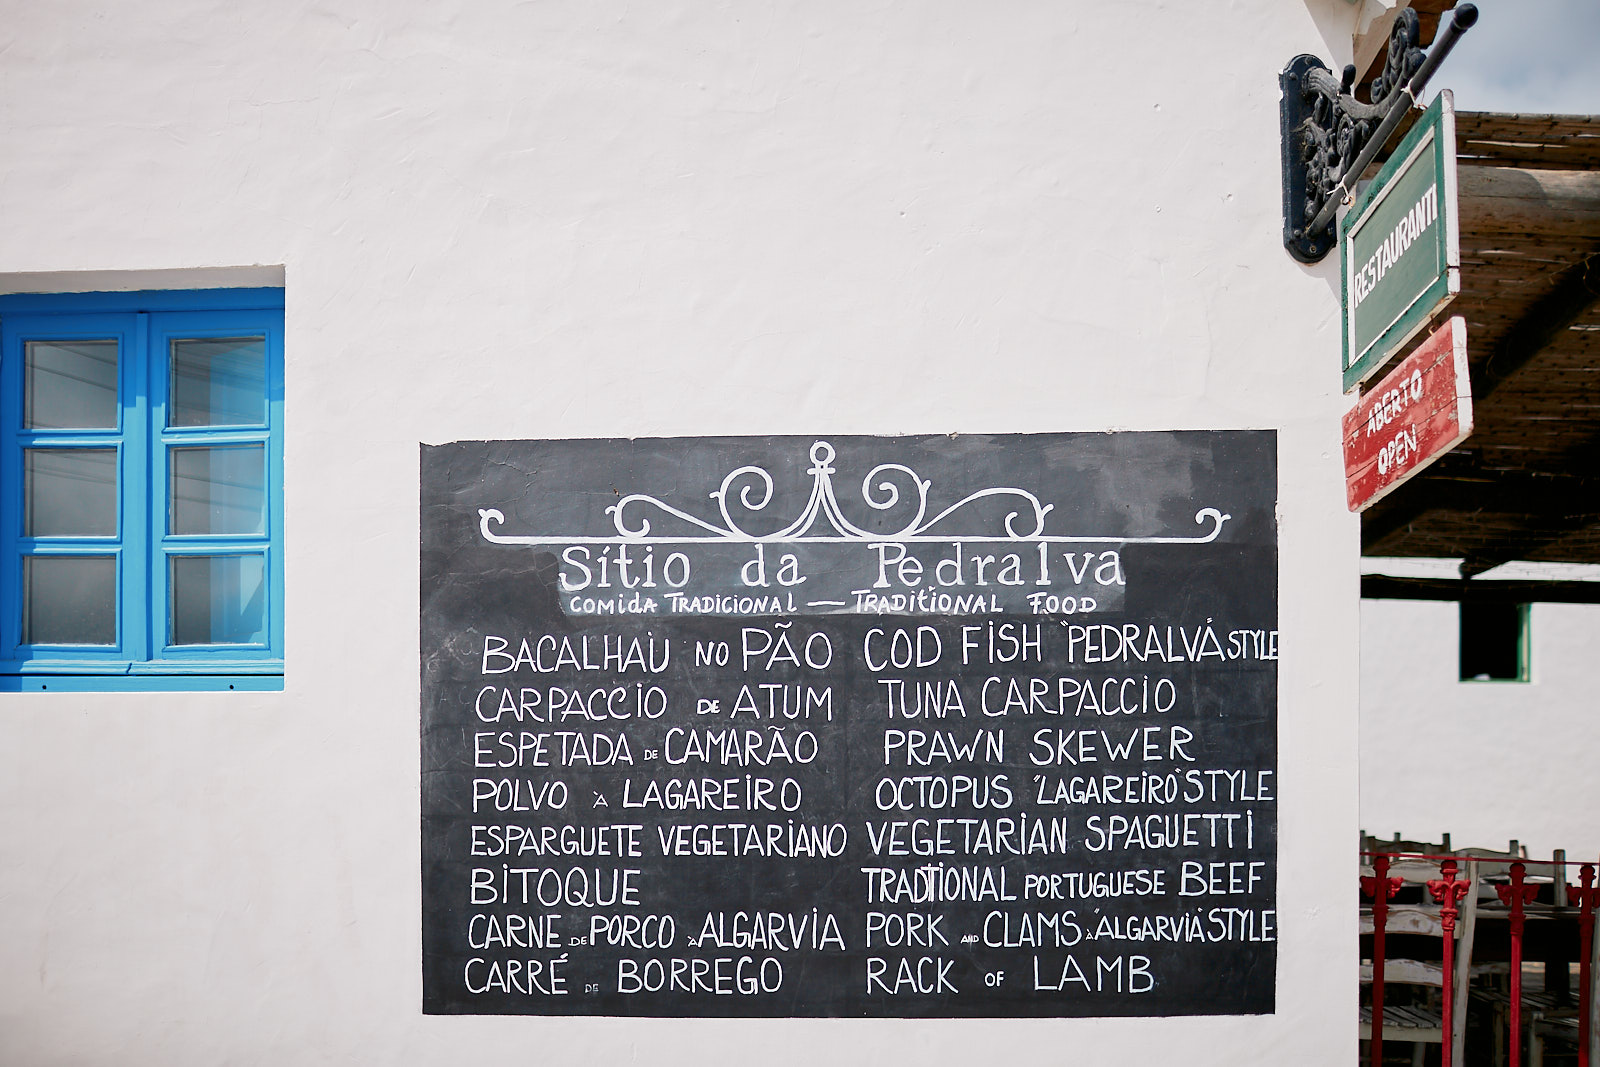 RESTAURANT
ABERTO
OPEN
Sítio da Pedralva
COMIDA TRADICIONAL — TRADITIONAL FOOD
BACALHAU NO PÃO COD FISH "PEDRALVA" STYLE
CARPACCIO DE ATUM TUNA CARPACCIO
ESPETADA DE CAMARÃO PRAWN SKEWER
POLVO À LAGAREIRO OCTOPUS "LAGAREIRO" STYLE
ESPARGUETE VEGETARIANO VEGETARIAN SPAGUETTI
BITOQUE TRADITIONAL PORTUGUESE BEEF
CARNE DE PORCO À ALGARVIA PORK AND CLAMS À "ALGARVIA" STYLE
CARRÉ DE BORREGO RACK OF LAMB